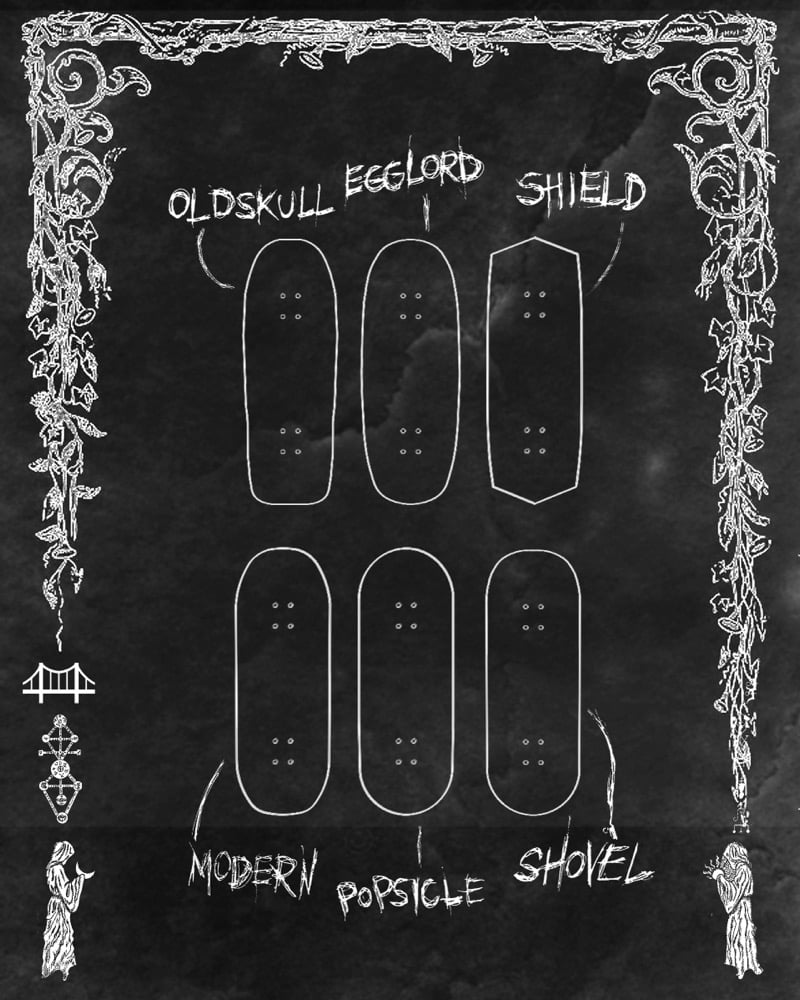 OLDSKULL
EGGLORD
SHIELD
MODERN
POPSICLE
SHOVEL